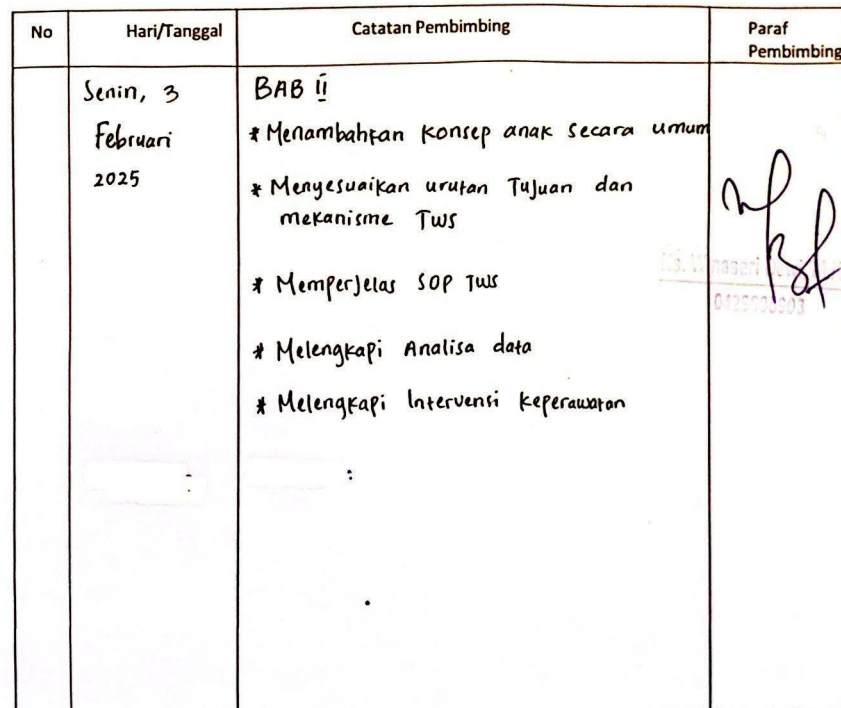 No Hari/Tanggal Catatan Pembimbing Paraf
Pembimbing
Senin, 3
Februari
2025
BAB II
* Menambahkan konsep anak secara umum
* Menyesuaikan urutan Tujuan dan
mekanisme TWS
* Memperjelas SOP TWS
* Melengkapi Analisa data
* Melengkapi Intervensi keperawatan